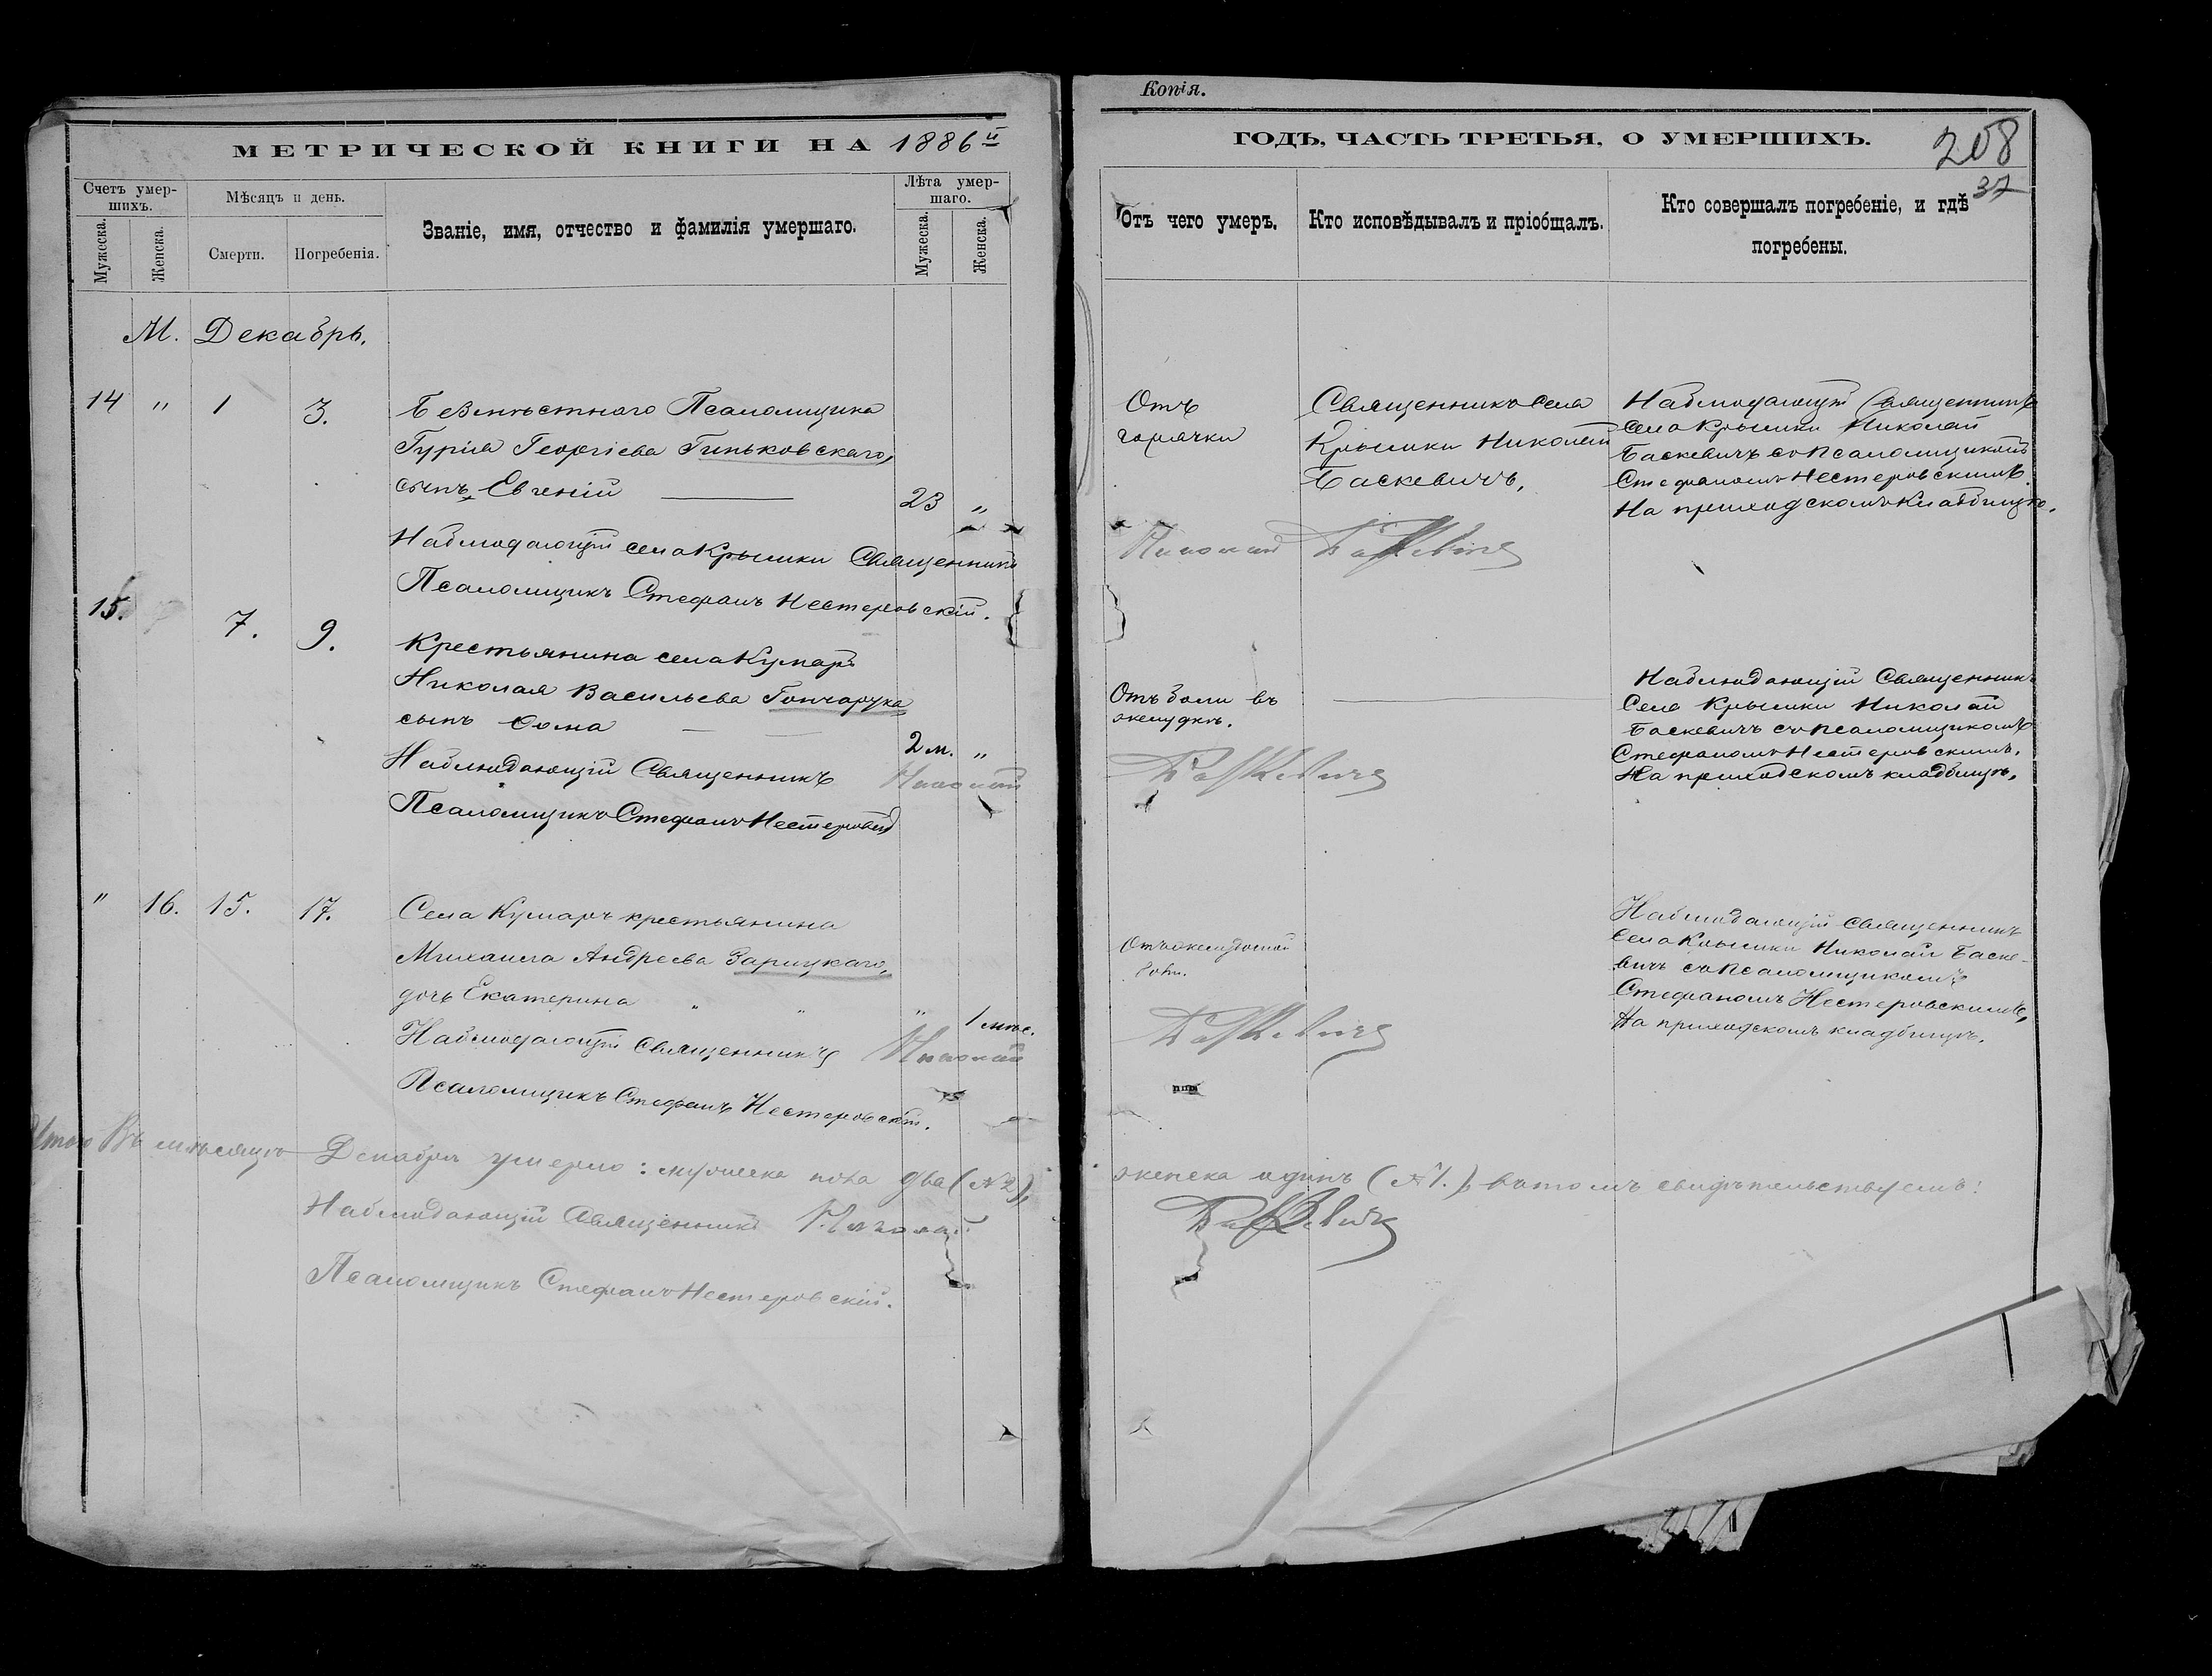 Копія.
МЕТРИЧЕСКОЙ КНИГИ НА 1886й
ГОДЪ, ЧАСТЬ ТРЕТЬЯ, О УМЕРШИХЪ.
208
37
Счетъ умер-
шихъ.
Мужеска.
Женска.
Мѣсяцъ и день.
Смерти.
Погребенія.
Званіе, имя, отчество и фамилія умершаго.
Лѣта умер-
шаго.
Мужеска.
Женска.
Отъ чего умеръ.
Кто исповѣдывалъ и пріобщалъ.
Кто совершалъ погребеніе, и гдѣ
погребены.
М. Декабрь.
14 " 1 3.
Безмѣстнаго Псаломщика
Гурія Георгіева Гиньковскаго,
сынъ Евгеній
23 "
Наблюдающій села Крышки Священникъ
Псаломщикъ Стефанъ Нестеровскій.
Отъ
горячки
Священникъ села
Крышки Николай
Баскевичъ,
Наблюдающій Священникъ
села Крышки Николай
Баскевичъ съ Псаломщикомъ
Стефаномъ Нестеровскимъ.
На приходскомъ кладбищѣ.
Николай Баскевичъ
15. 7. 9.
Крестьянина села Кумаръ
Николая Васильева Гончарука
сынъ Ѳома
2 м. "
Наблюдающій Священникъ Николай
Псаломщикъ Стефанъ Нестеровскій
Отъ боли въ
желудкѣ.
Баскевичъ
Наблюдающій Священникъ
Села Крышки Николай
Баскевичъ съ Псаломщикомъ
Стефаномъ Нестеровскимъ.
На приходскомъ кладбищѣ.
" 16. 15. 17.
Села Кумаръ крестьянина
Михаила Андреева Зарицкаго,
дочь Екатерина " "
" 1 мѣс.
Наблюдающій Священникъ Николай
Псаломщикъ Стефанъ Нестеровскій.
Отъ желудочной
боли.
Баскевичъ
Наблюдающій священникъ
села Крышки Николай Баске-
вичъ съ Псаломщикомъ
Стефаномъ Нестеровскимъ,
На приходскомъ кладбищѣ.
Итого Въ мѣсяцѣ Декабрѣ умерло: мужеска пола два (№ 2),
женска одинъ (№ 1.), въ томъ свидѣтельствуемъ:
Наблюдающій Священникъ Николай
Баскевичъ
Псаломщикъ Стефанъ Нестеровскій.